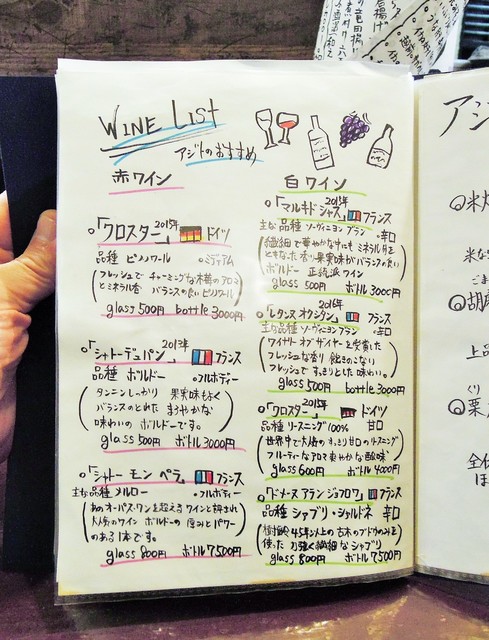 WINE LIST
アジトのおすすめ
赤ワイン
◎「クロスター」2015年 ドイツ
品種 ピノノワール ○ミディアム
(フレッシュで チャーミングな木苺のアロマ
とミネラル香 バランスの良いピノノワール)
glass 500円 bottle 3000円
◎「シャトーデュパン」2013年 フランス
品種 ボルドー ○フルボディー
(タンニンしっかり 果実味もよく
バランスのとれた まろやかな
味わいの ボルドーです。)
glass 500円 ボトル 3000円
◎「シャトー モン ペラ」 フランス
主な品種 メルロー ○フルボディー
(あのオーパス・ワンを超えるワインと称され
た大傍のワイン ボルドーの 厚みとパワー
のある1本です。)
glass 800円 ボトル 7500円
白ワイン
◎「マルキドシャス」2015年 フランス
主な品種 ソーヴィニヨン ブラン ○辛口
(繊細で華やかな中にも ミネラル分と
ともなった香り果実味がバランスの良い
ボルドー 正統派ワイン)
glass 500円 ボトル 3000円
◎「レタンス オクシタン」2016年 フランス
主な品種 ソーヴィニヨン ブラン ○辛口
(ワイナリー オブ ザイヤーを受賞した
フレッシュな香り 飽きのこない
フレッシュで すっきりとした味わい。)
glass 500円 bottle 3000円
◎「クロスター」2015年 ドイツ
品種 リースニング 100% 甘口
(世界中で大傍のすっきり甘口のリースニング
フルーティーなアロマ 爽やかな酸味)
glass 600円 ボトル 4000円
◎「ドメーヌ アラン ジョフロワ」 フランス
品種 シャブリ・シャルドネ 辛口
(樹齢45年以上の 古木のブドウのみを
使った 力強く繊細な シャブリ)
glass 800円 ボトル 7500円
アジ
◎米
◎胡麻
上品
◎栗